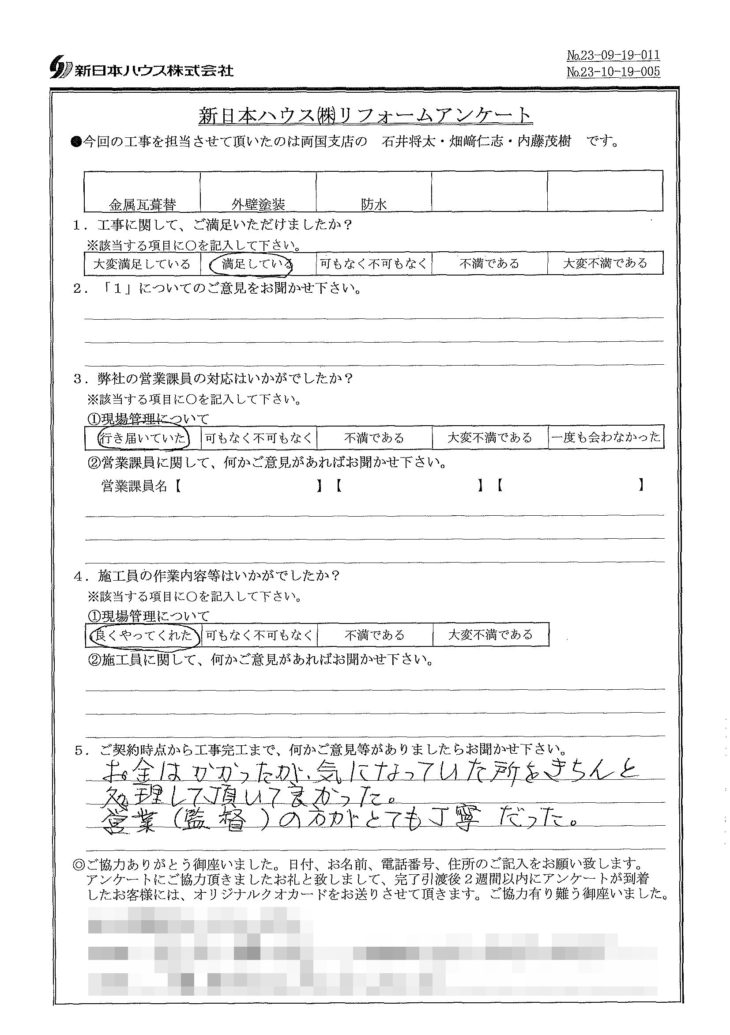 新日本ハウス株式会社
№23-09-19-011
№23-10-19-005
新日本ハウス㈱リフォームアンケート
●今回の工事を担当させて頂いたのは両国支店の 石井将太・畑﨑仁志・内藤茂樹 です。
金属瓦葺替 外壁塗装 防水
1．工事に関して、ご満足いただけましたか？
※該当する項目に○を記入して下さい。
大変満足している 満足している 可もなく不可もなく 不満である 大変不満である
2．「１」についてのご意見をお聞かせ下さい。
3．弊社の営業課員の対応はいかがでしたか？
※該当する項目に○を記入して下さい。
①現場管理について
行き届いていた 可もなく不可もなく 不満である 大変不満である 一度も会わなかった
②営業課員に関して、何かご意見があればお聞かせ下さい。
営業課員名【 】【 】【 】
4．施工員の作業内容等はいかがでしたか？
※該当する項目に○を記入して下さい。
①現場管理について
良くやってくれた 可もなく不可もなく 不満である 大変不満である
②施工員に関して、何かご意見があればお聞かせ下さい。
5．ご契約時点から工事完工まで、何かご意見等がありましたらお聞かせ下さい。
お金はかかったが、気になっていた所をきちんと
処理して頂いて良かった。
営業（監督）の方がとても丁寧だった。
◎ご協力ありがとう御座いました。日付、お名前、電話番号、住所のご記入をお願い致します。
アンケートにご協力頂きましたお礼と致しまして、完了引渡後２週間以内にアンケートが到着
したお客様には、オリジナルクオカードをお送りさせて頂きます。ご協力有り難う御座いました。